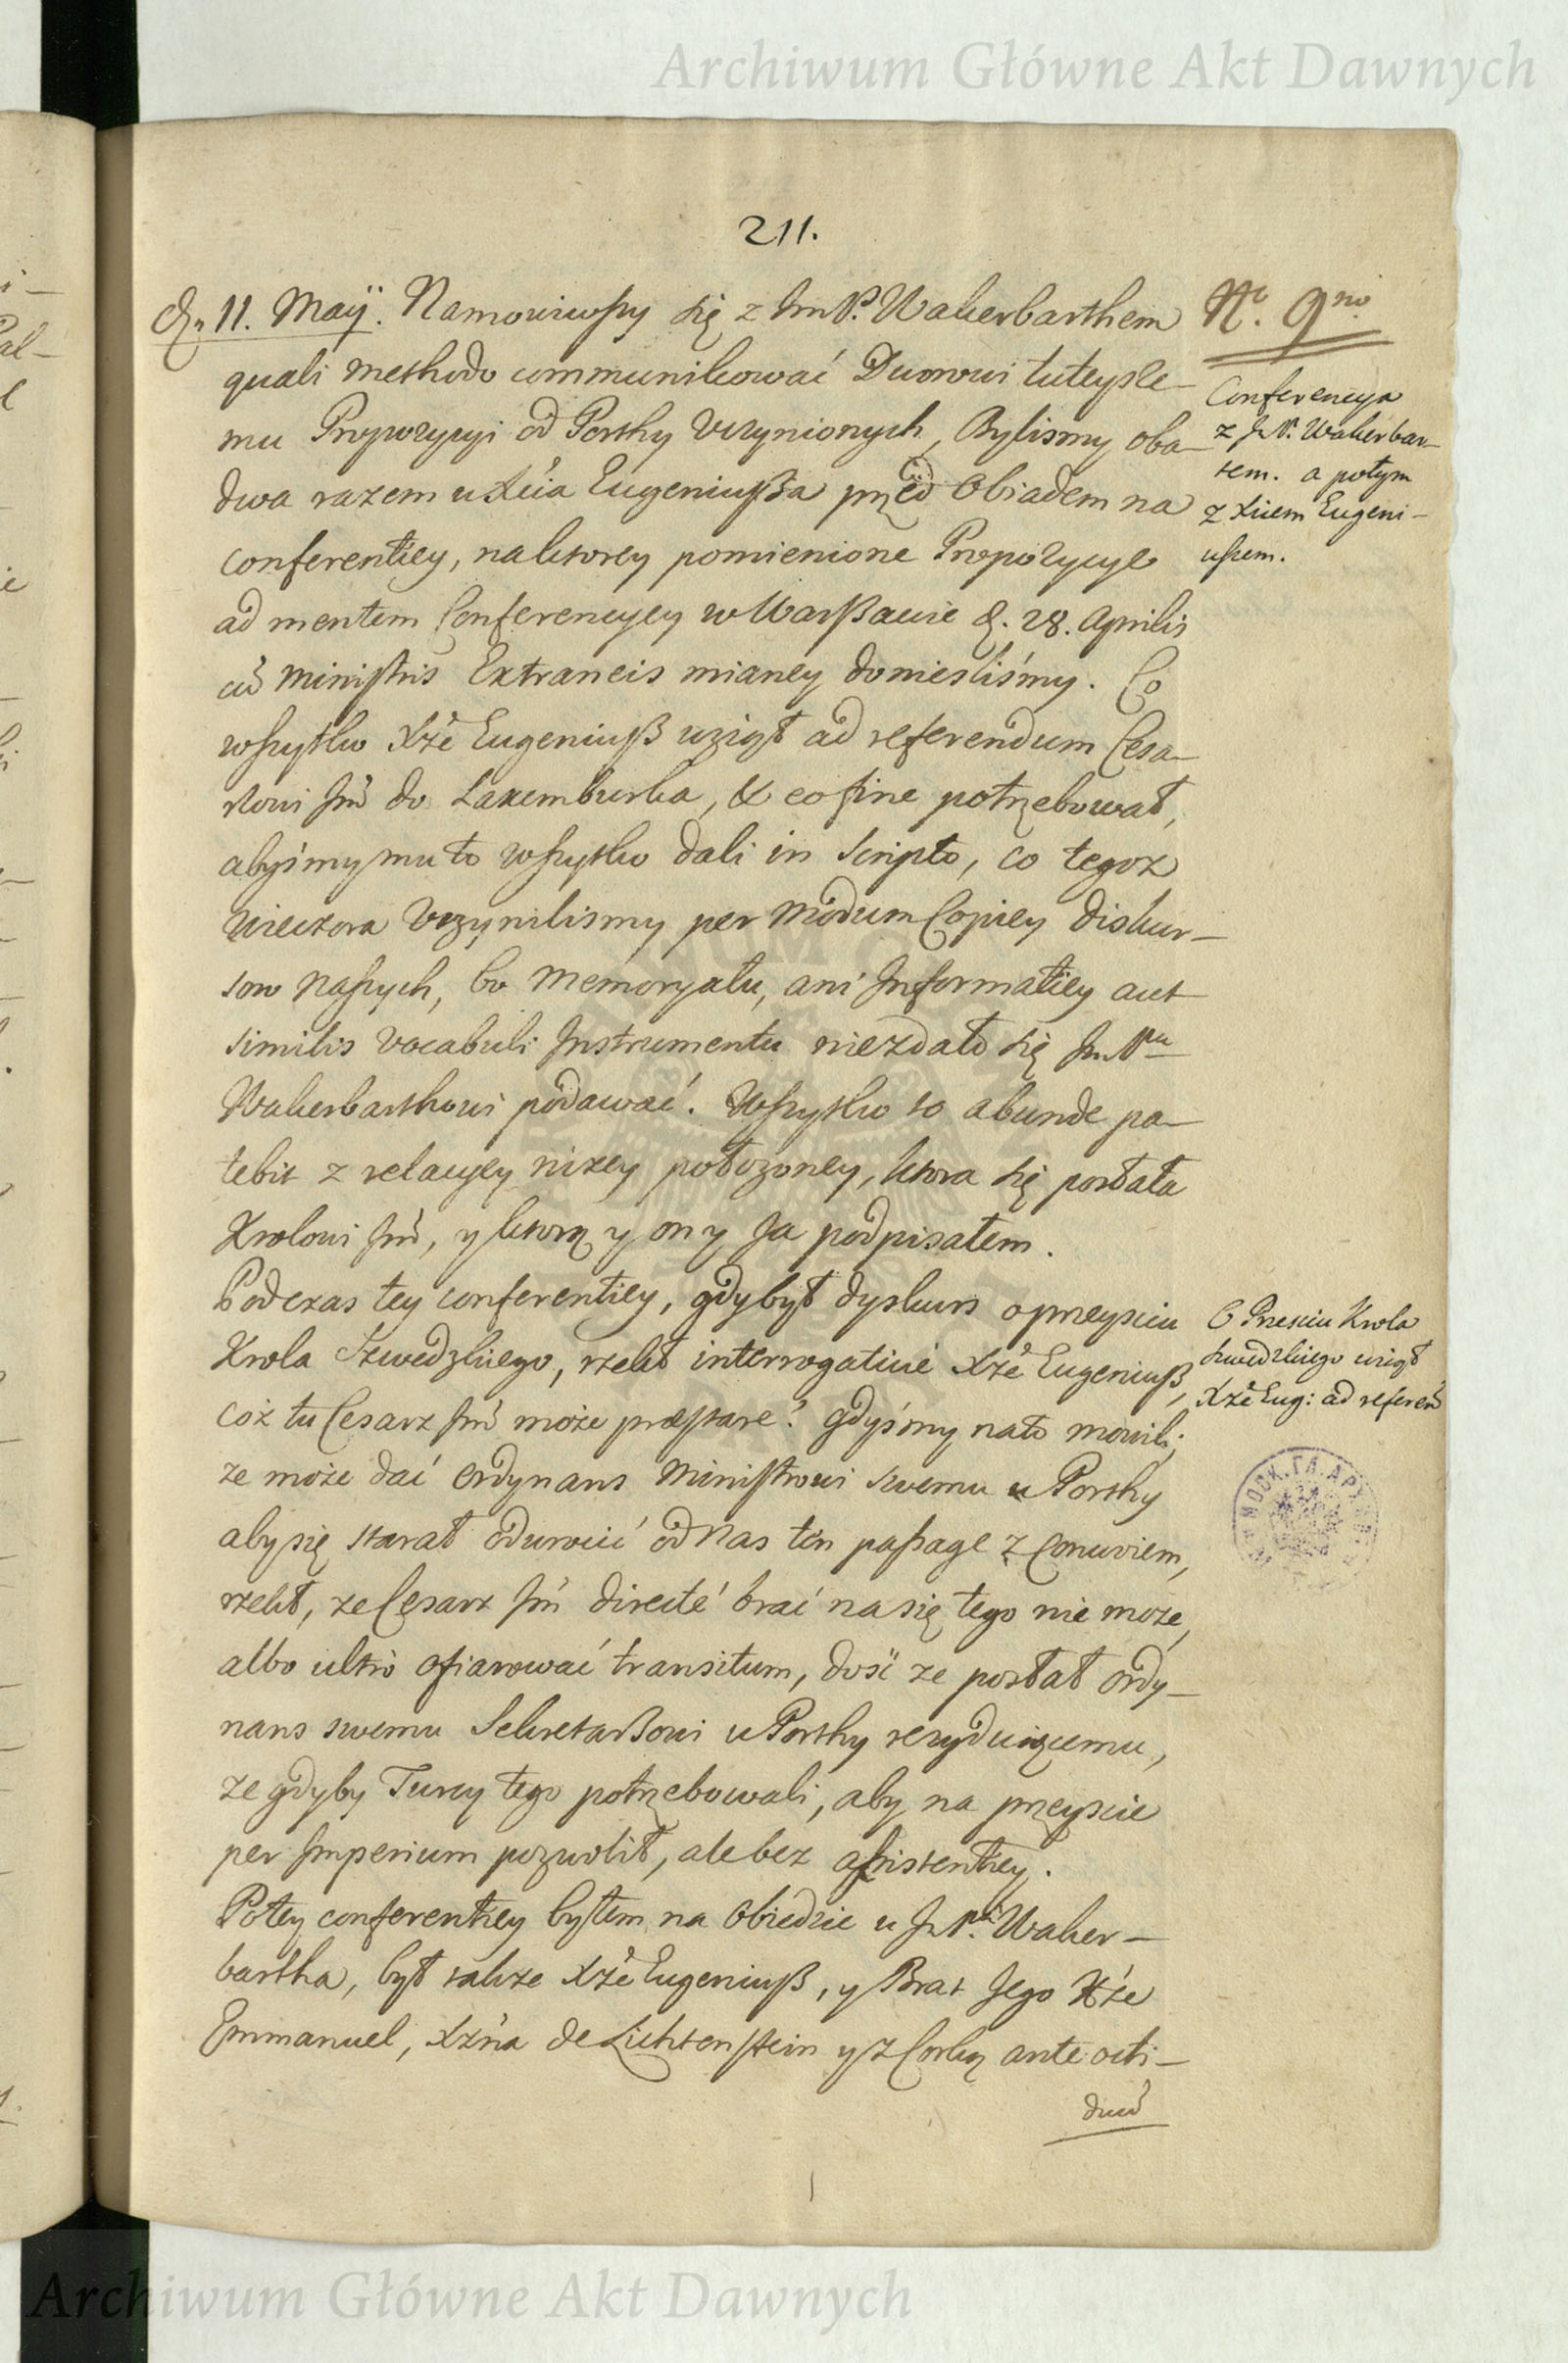 Archiwum Główne Akt Dawnych
211.
d. 11. Maÿ. Namowiwszy się z JmP. Wakerbarthem
quali methodo communikować Dworowi tuteysze-
mu Propozycyi od Porthy uczynionych, Bylismy oba-
dwa razem u Xcia Eugeniusza przed Obiadem na
conferentiey, naktorey pomienione Propozycye
ad mentem Conferencyey w Warszawie d. 28. Aprilis
cũ Ministris Extraneis mianey donieslismy. Co
wszytko Xże Eugeniusz wziął ad referendum Cesa-
rzowi Jm̃ do Laxemburka, & eo fine potrzebował,
abyśmy mu to wszytko dali in scripto, co tegoz
wieczora uczynilismy per modum Copiey diskur-
sow naszych, bo Memoryału, ani Informatiey aut
similis vocabuli Instrumentu niezdało się JmPu
Wakerbarthowi podawać. Wszytko to abunde pa-
tebit z relacyey nizey położoney, ktora się posłała
Krolowi Jm̃, y ktorą y on y Ja podpisałem.
Podczas tey conferentiey, gdy był dyskurs o przeysciu
Krola Szwedzkiego, rzekł interrogativé Xże Eugeniusz,
coż tu Cesarz Jm̃ może præstare? gdyśmy nato mowili,
ze może dać ordynans Ministrowi swemu u Porthy
aby się starał odwrócić od nas ten passage z Convoiem,
rzekł, ze Cesarz Jm̃ directé brać na się tego nie może,
albo ultro ofiarować transitum, dość ze posłał ordy-
nans swemu Sekretarzowi u Porthy rezyduiącemu,
ze gdyby Turcy tego potrzebowali, aby na przeyscie
per Imperium pozwolił, ale bez assistentiey.
Po tey conferentiey byłem na Obiedzie u JmPa Waker-
bartha, był takze Xże Eugeniusz, y Brat Jego Xże
Emmanuel, Xżna de Lichtenstein y z Corką ante octi-
duũ
No. 9no
Conferencya
z JmP. Wakerbar-
tem. a potym
z Xciem Eugeni-
uszem.
O Przesciu Krola
szwedzkiego wziął
Xże Eug: ad referen̄
МОСК. ГЛ. АРХИВ
Archiwum Główne Akt Dawnych